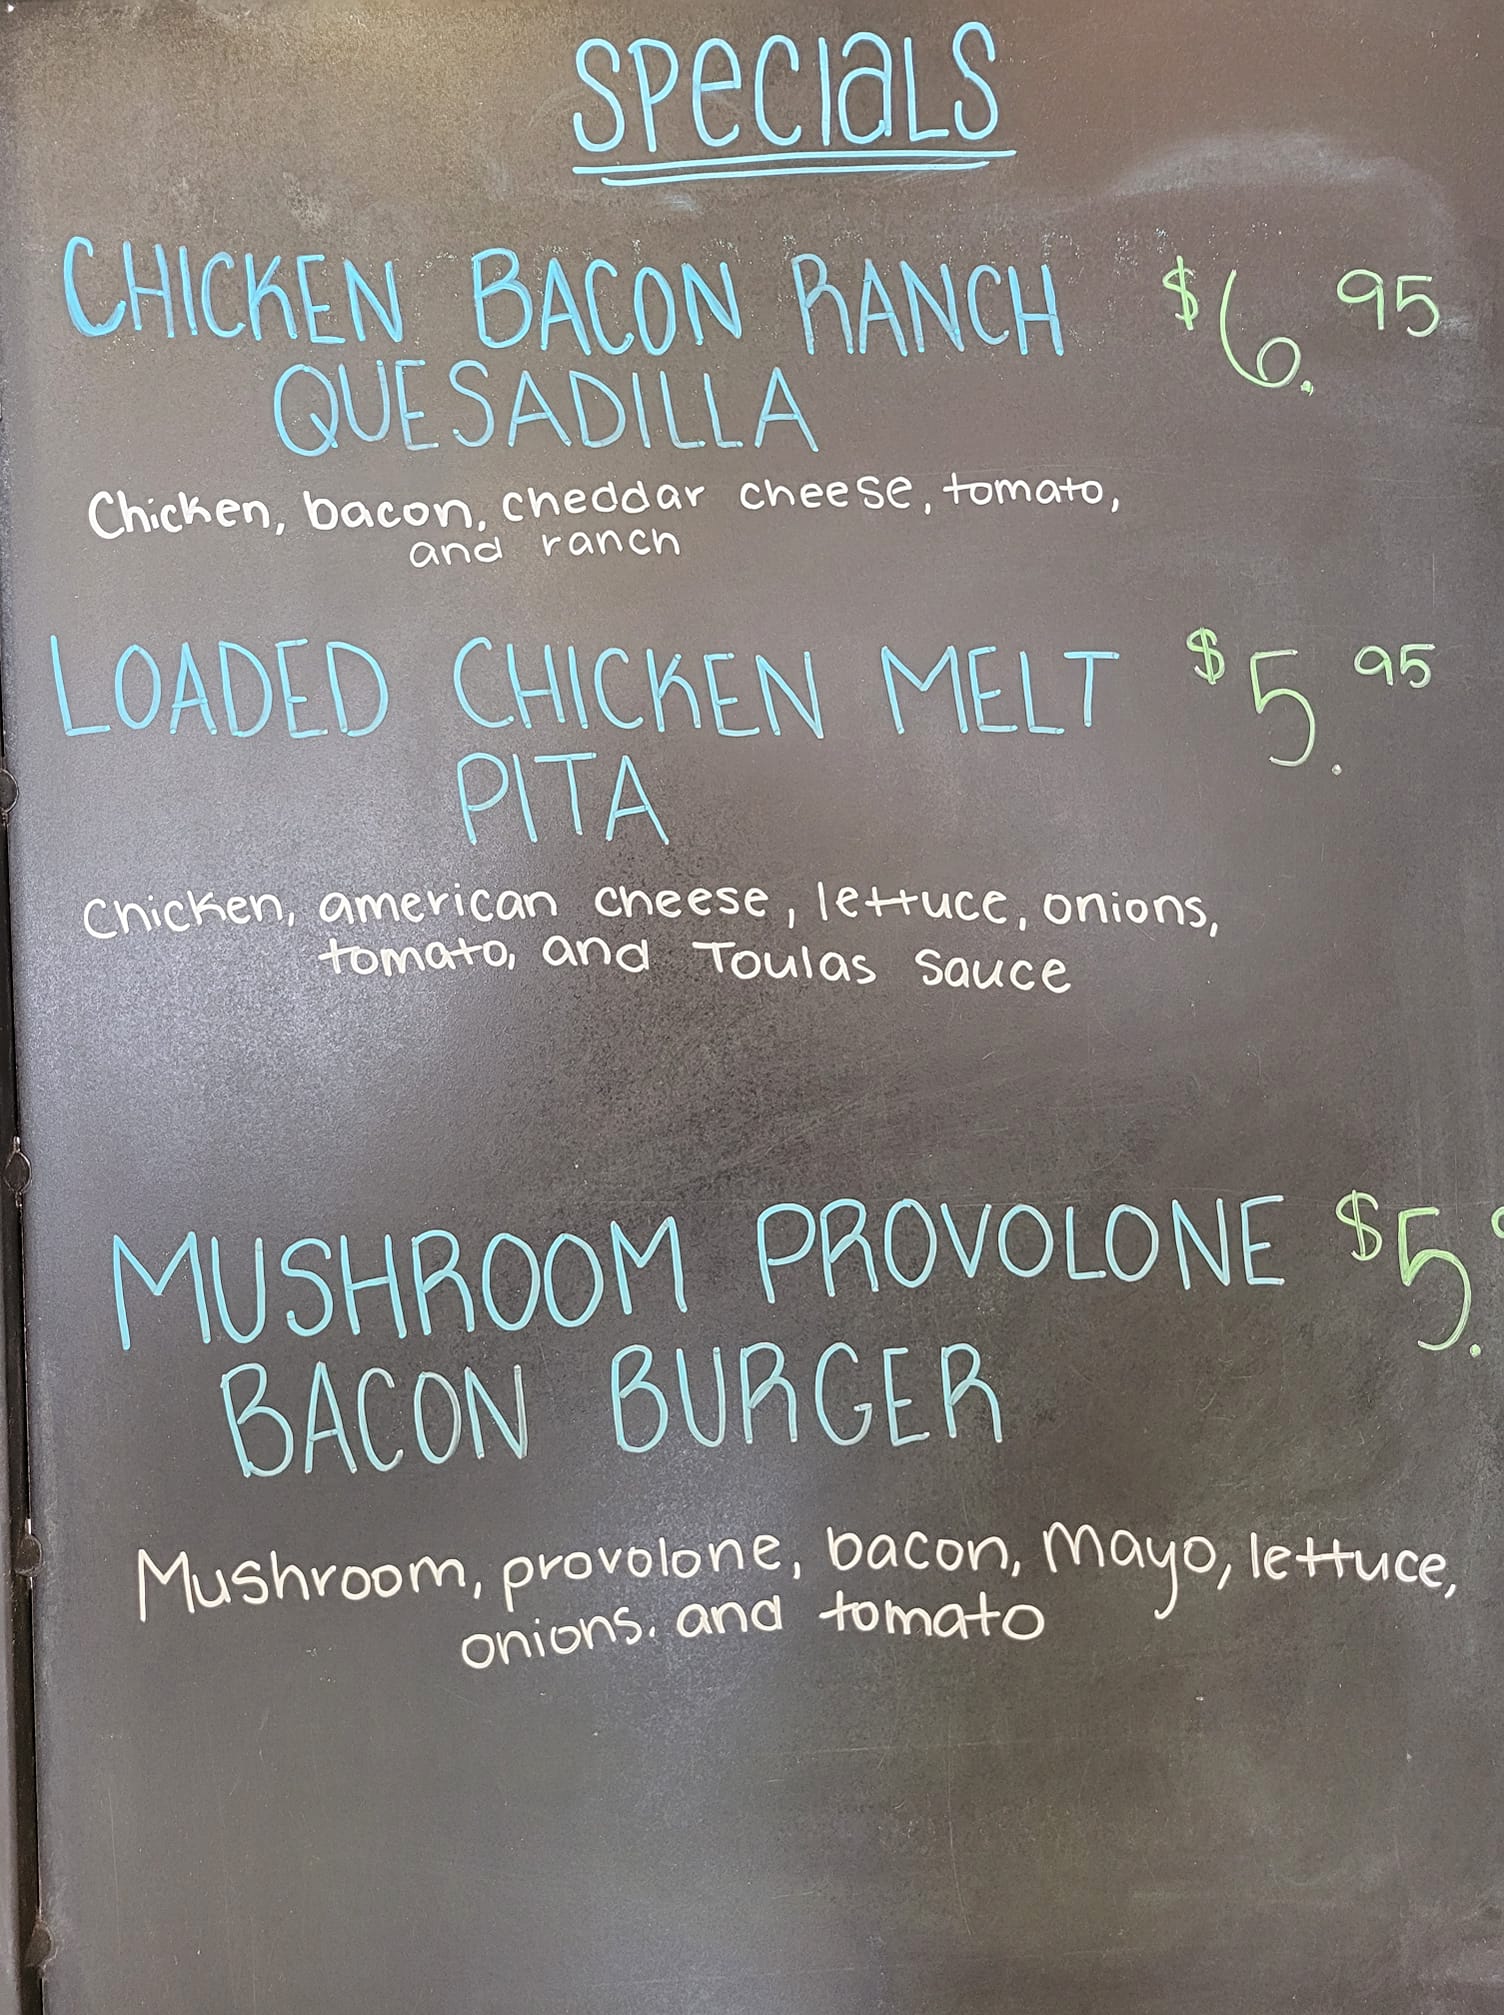 SPECIALS
CHICKEN BACON RANCH $6.95
QUESADILLA
Chicken, bacon, cheddar cheese, tomato,
and ranch
LOADED CHICKEN MELT $5.95
PITA
Chicken, american cheese, lettuce, onions,
tomato, and Toulas sauce
MUSHROOM PROVOLONE $5.
BACON BURGER
Mushroom, provolone, bacon, mayo, lettuce,
onions, and tomato